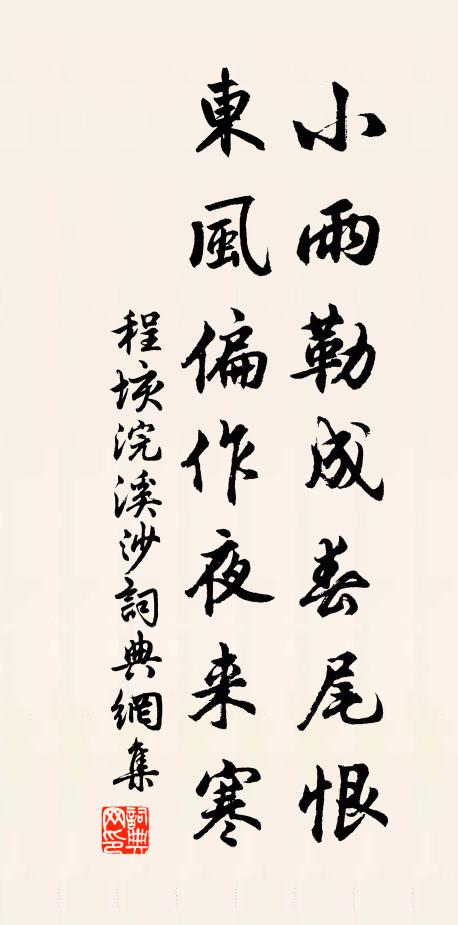 小雨勒成春尾恨
東風偏作夜来寒
程垓浣溪沙詞典網集
詞典網印